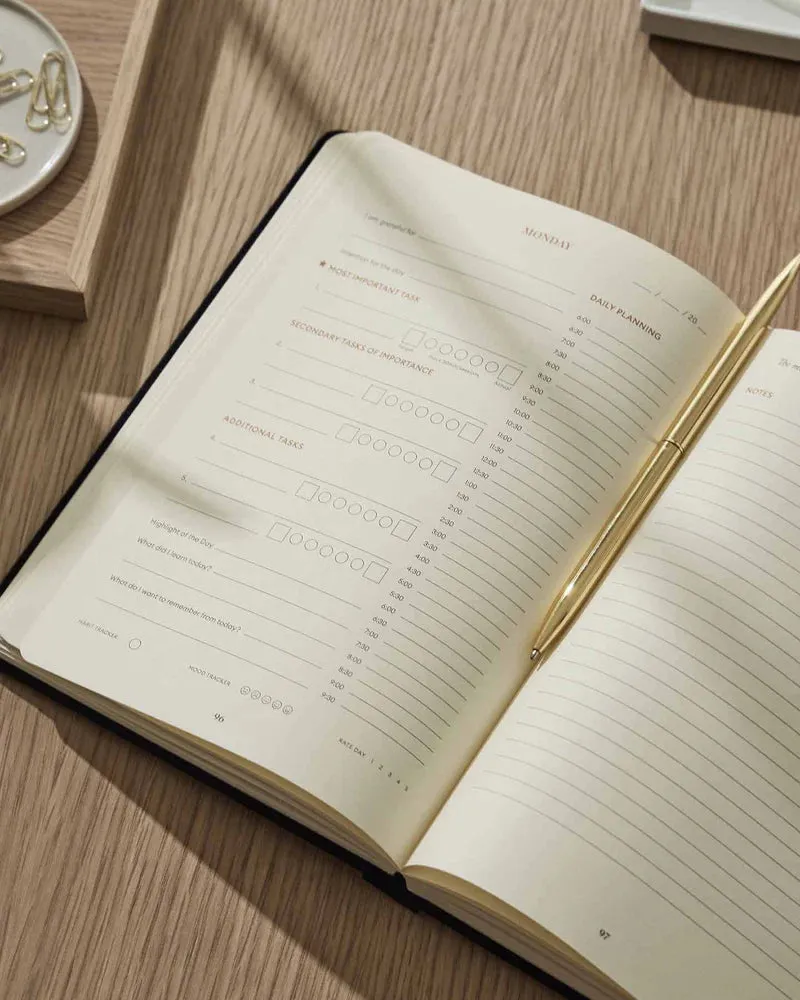 MONDAY
I am grateful for
__ / __ / 20__
Intention for the day
★ MOST IMPORTANT TASK
1.
SECONDARY TASKS OF IMPORTANCE
2.
3.
ADDITIONAL TASKS
4.
5.
Highlight of the Day
What did I learn today?
What do I want to remember from today?
HABIT TRACKER
MOOD TRACKER
96
DAILY PLANNING
6:00
6:30
7:00
7:30
8:00
8:30
9:00
9:30
10:00
10:30
11:00
11:30
12:00
12:30
1:00
1:30
2:00
2:30
3:00
3:30
4:00
4:30
5:00
5:30
6:00
6:30
7:00
7:30
8:00
8:30
9:00
9:30
RATE DAY 1 2 3 4 5
NOTES
97